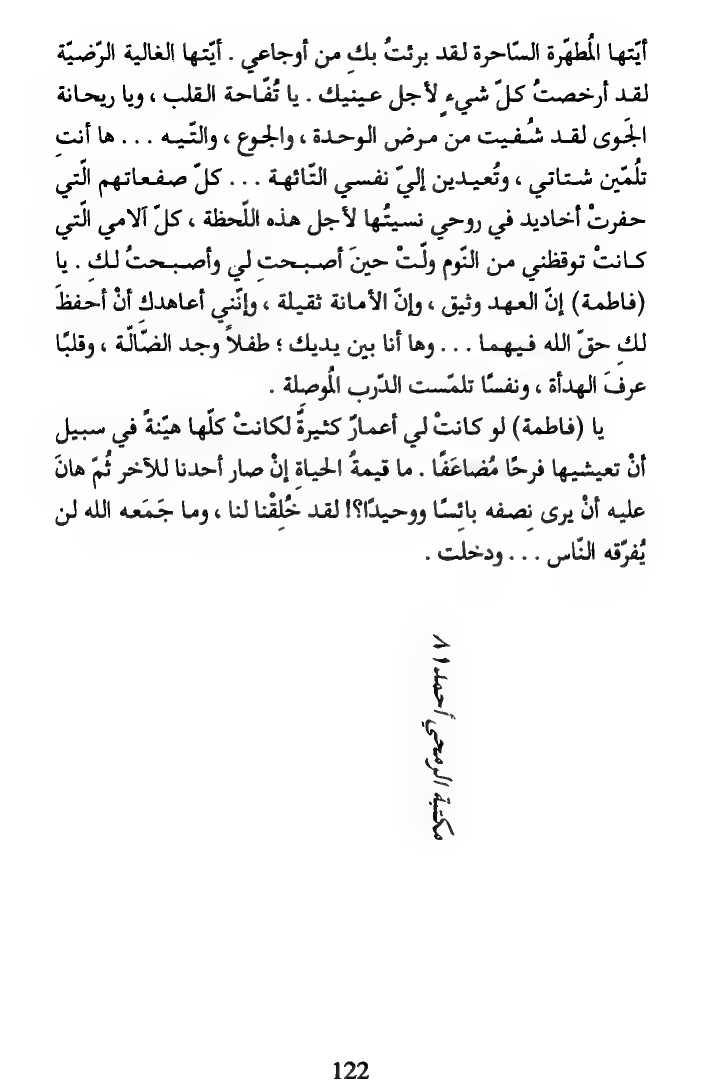 أيّتها المُطهّرة السّاحرة لقد برئتُ بكِ من أوجاعي . أيّتها الغالية الرّضيّة
لقد أرخصتُ كلّ شيءٍ لأجل عينيك . يا تُفّاحة القلب ، ويا ريحانة
الجَوى لقد شُفيت من مرض الوحدة ، والجوع ، والتّيه ... ها أنتِ
تلُمّين شتاتي ، وتُعيدين إليّ نفسي التّائهة ... كلّ صفعاتهم الّتي
حفرتْ أخاديد في روحي نسيتُها لأجل هذه اللّحظة ، كلّ آلامي الّتي
كانتْ توقظني من النّوم ولّتْ حينَ أصبحتِ لي وأصبحتُ لكِ . يا
(فاطمة) إنّ العهد وثيق ، وإنّ الأمانة ثقيلة ، وإنّني أعاهدكِ أنْ أحفظَ
لكِ حقّ الله فيهما ... وها أنا بين يديك ؛ طفلاً وجد الضّالّة ، وقلبًا
عرفَ الهدأة ، ونفسًا تلمّست الدّرب المُوصِلة .
يا (فاطمة) لو كانتْ لي أعمارٌ كثيرةً لكانتْ كلّها هيّنةً في سبيل
أنْ تعيشيها فرحًا مُضاعَفًا . ما قيمةُ الحياةِ إنْ صار أحدنا للآخر ثُمّ هانَ
عليه أنْ يرى نِصفه بائسًا ووحيدًا؟! لقد خُلِقْنا لنا ، وما جَمَعه الله لن
يُفرّقه النّاس ... ودخلت .
مكتبة الرمحي أحمد ٨١
122